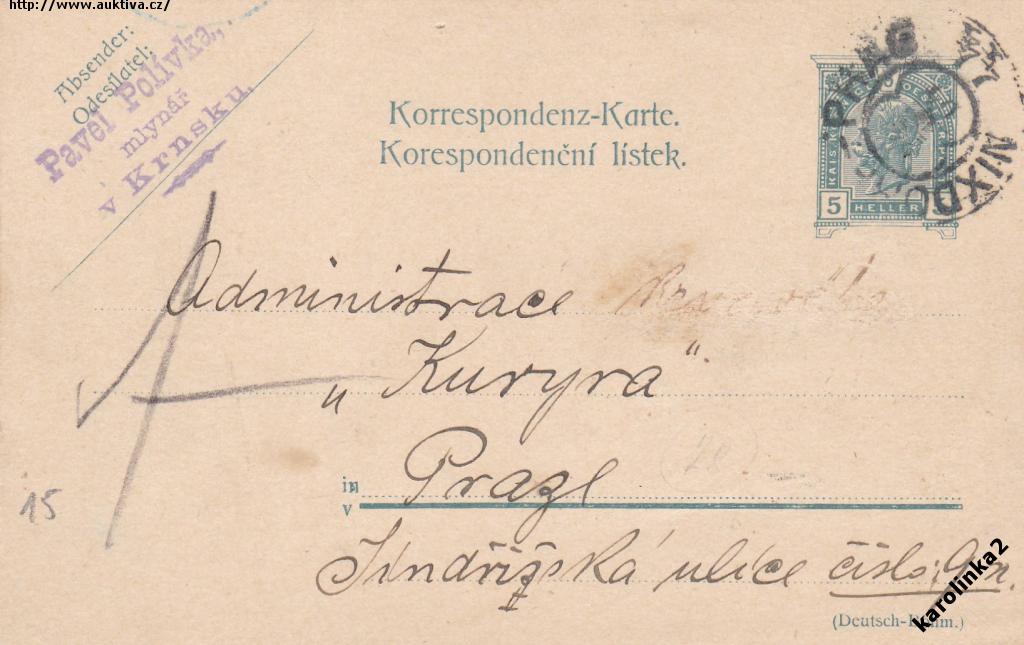 http://www.auktiva.cz/
Absender:
Odesílatel:
Pavel Polívka,
mlynář
v Krnsku.
Korrespondenz-Karte.
Korespondenční lístek.
PRAG
NIXDO
KAIS. KÖNIGL. OESTERR. P
5 HELLER 5
Administrace
„Kuryra“
in Praze
v
Jindřišská ulice číslo
15
(Deutsch-Böhm.)
karolinka2